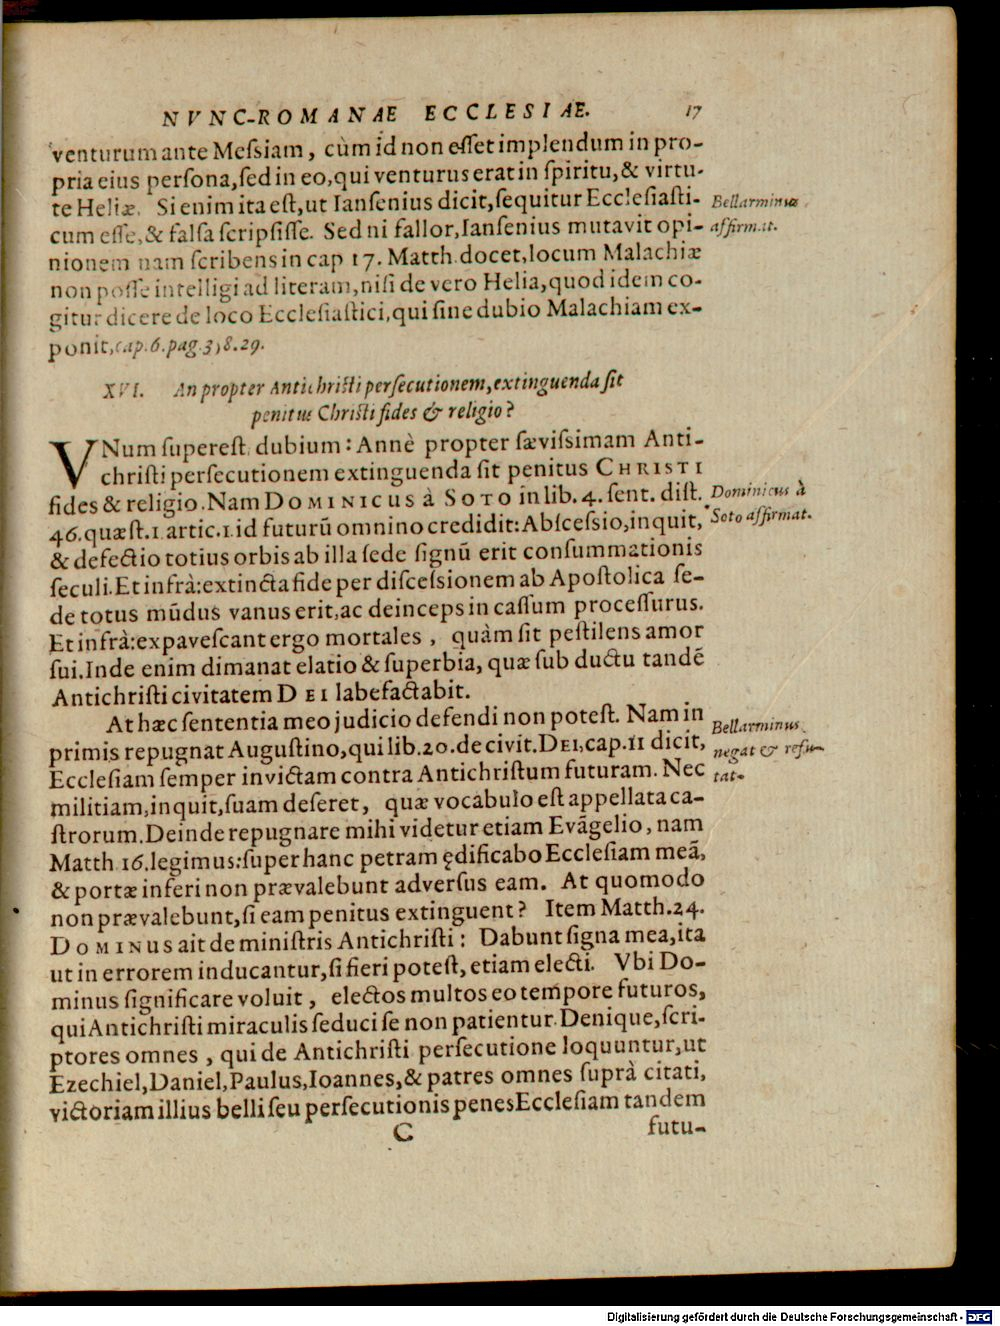 NVNC-ROMANAE ECCLESIAE. 17
venturum ante Meſsiam, cùm id non eſſet implendum in pro-
pria eius perſona, ſed in eo, qui venturus erat in ſpiritu, & virtu-
te Heliæ. Si enim ita eſt, ut Ianſenius dicit, ſequitur Eccleſiaſti-
Bellarminus
cum eſſe, & falſa ſcripſiſſe. Sed ni fallor, Ianſenius mutavit opi-
affirmat.
nionem nam ſcribens in cap 17. Matth. docet, locum Malachiæ
non poſſe intelligi ad literam, niſi de vero Helia, quod idem co-
gitur dicere de loco Eccleſiaſtici, qui ſine dubio Malachiam ex-
ponit, cap. 6. pag. 3)8. 29.
XVI. An propter Antichriſti perſecutionem, extinguenda ſit
penitus Chriſti fides & religio?
VNum ſupereſt dubium: Annè propter ſæviſsimam Anti-
chriſti perſecutionem extinguenda ſit penitus CHRISTI
fides & religio. Nam DOMINICUS à SOTO in lib. 4. ſent. diſt.
Dominicus à
46. quæſt. 1 artic. 1. id futurũ omnino credidit: Abſceſsio, inquit,
Soto affirmat.
& defectio totius orbis ab illa ſede ſignũ erit conſummationis
ſeculi. Et infrà: extincta fide per diſceſsionem ab Apoſtolica ſe-
de totus mũdus vanus erit, ac deinceps in caſſum proceſſurus.
Et infrà: expaveſcant ergo mortales, quàm ſit peſtilens amor
ſui. Inde enim dimanat elatio & ſuperbia, quæ ſub ductu tandẽ
Antichriſti civitatem DEI labefactabit.
At hæc ſententia meo judicio defendi non poteſt. Nam in
Bellarminus
primis repugnat Auguſtino, qui lib. 20. de civit. DEI, cap. 11 dicit,
negat & refu-
Eccleſiam ſemper invictam contra Antichriſtum futuram. Nec
tat.
militiam, inquit, ſuam deſeret, quæ vocabulo eſt appellata ca-
ſtrorum. Deinde repugnare mihi videtur etiam Evãgelio, nam
Matth 16. legimus: ſuper hanc petram ędificabo Eccleſiam meã,
& portæ inferi non prævalebunt adverſus eam. At quomodo
non prævalebunt, ſi eam penitus extinguent? Item Matth. 24.
DOMINUS ait de miniſtris Antichriſti: Dabunt ſigna mea, ita
ut in errorem inducantur, ſi fieri poteſt, etiam electi. Vbi Do-
minus ſignificare voluit, electos multos eo tempore futuros,
qui Antichriſti miraculis ſeduci ſe non patientur. Denique, ſcri-
ptores omnes, qui de Antichriſti perſecutione loquuntur, ut
Ezechiel, Daniel, Paulus, Ioannes, & patres omnes ſuprà citati,
victoriam illius belli ſeu perſecutionis penes Eccleſiam tandem
C futu-
Digitalisierung gefördert durch die Deutsche Forschungsgemeinschaft - DFG